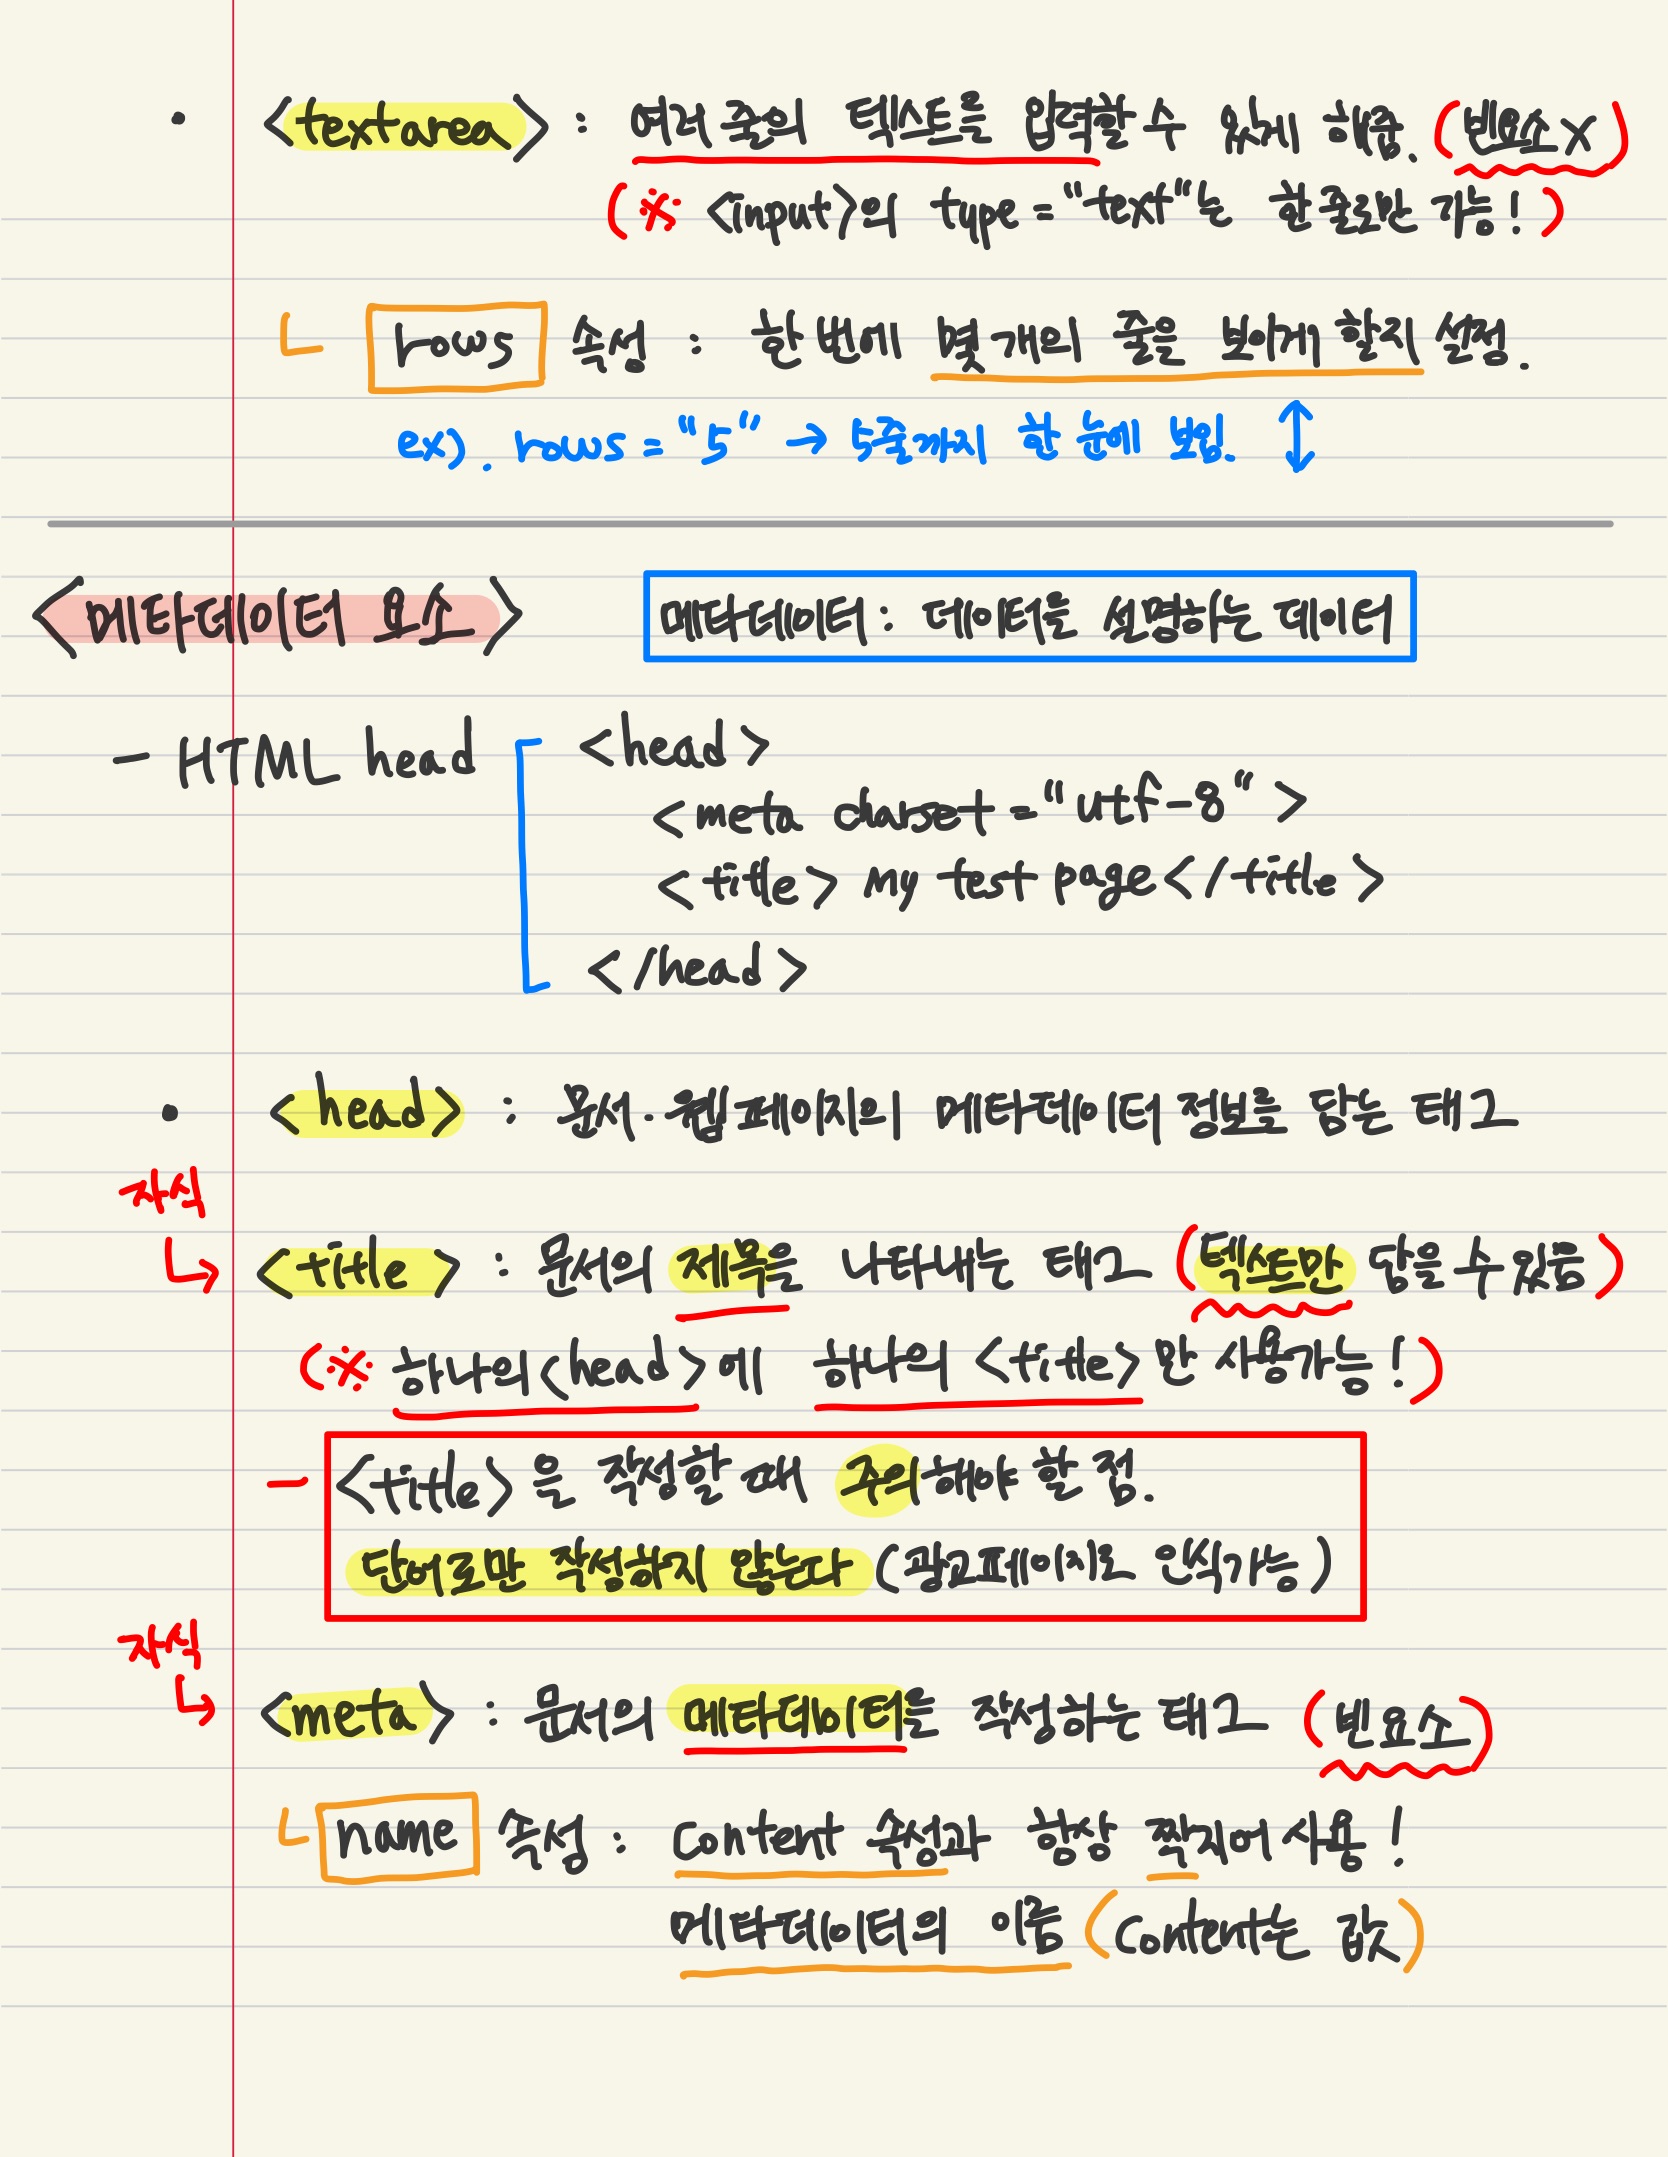 • <textarea> : 여러 줄의 텍스트를 입력할 수 있게 해줌. (빈요소X)
(※ <input>의 type="text"는 한 줄로만 가능!)
ㄴ rows 속성 : 한 번에 몇 개의 줄을 보이게 할지 설정.
ex). rows = "5" → 5줄까지 한 눈에 보임. ↕
<메타데이터 요소> 메타데이터 : 데이터를 설명하는 데이터
- HTML head
<head>
<meta charset = "utf-8" >
<title> My test page </title>
</head>
• <head> : 문서·웹페이지의 메타데이터 정보를 담는 태그
자식
↳ <title> : 문서의 제목을 나타내는 태그 (텍스트만 담을 수 있음)
(※ 하나의 <head>에 하나의 <title>만 사용가능!)
- <title>을 작성할 때 주의해야 할 점.
단어로만 작성하지 않는다 (광고페이지로 인식가능)
자식
↳ <meta> : 문서의 메타데이터를 작성하는 태그 (빈요소)
ㄴ name 속성 : Content 속성과 항상 짝지어 사용!
메타데이터의 이름 (Content는 값)